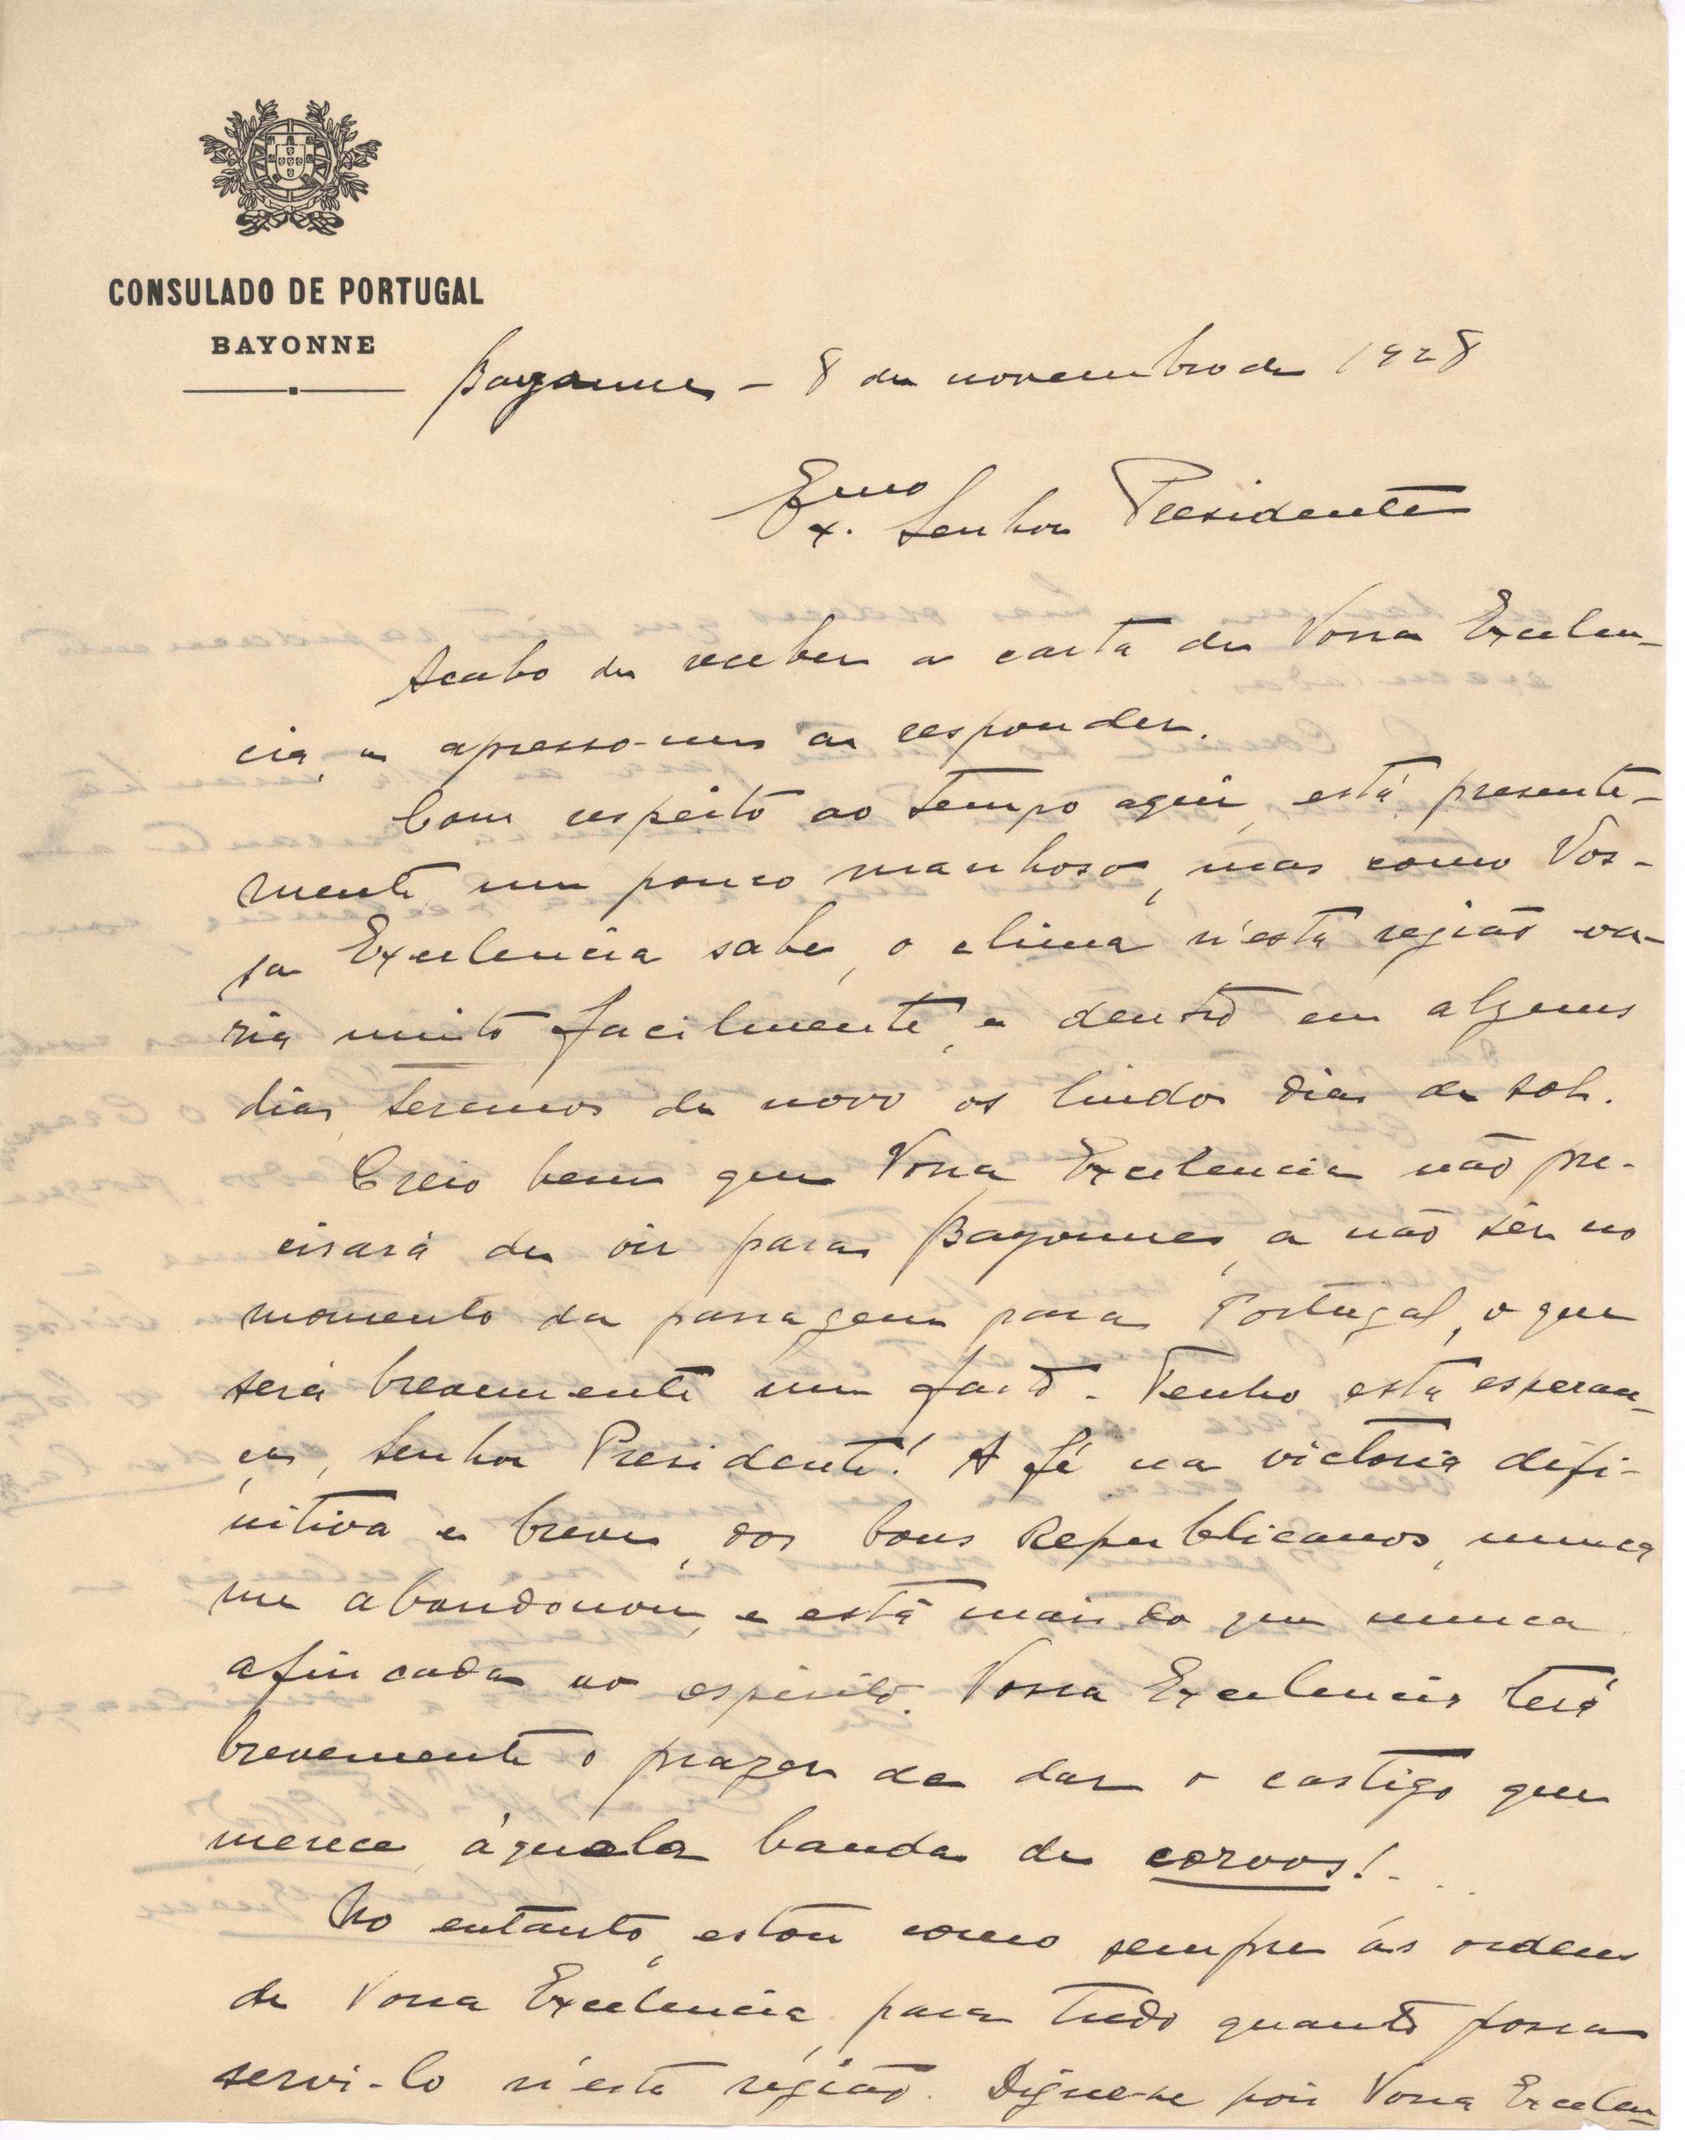 CONSULADO DE PORTUGAL
BAYONNE
Bayonne - 8 de novembro de 1928
Exmo. Senhor Presidente
Acabo de receber a carta de Vossa Excelen-
cia, e apresso-me a responder.
Com respeito ao tempo aqui, está presente-
mente um pouco manhoso, mas como Vos-
sa Excelencia sabe, o clima n'esta região va-
ria muito facilmente, e dentro em alguns
dias, teremos de novo os lindos dias de sol.
Creio bem que Vossa Excelencia não pre-
cisará de vir para Bayonne, a não sêr no
momento da passagem para Portugal, o que
será brevemente um facto. Tenho esta esperan-
ça, Senhor Presidente! A fé na victoria defi-
nitiva e breve, dos bons Republicanos, nunca
me abandonou, e está mais do que nunca
afincada no espirito. Vossa Excelencia terá
brevemente o prazer de dar o castigo que
merece, áquela banda de corvos!...
No entanto, estou como sempre ás ordens
de Vossa Excelencia, para tudo quanto possa
servi-lo n'esta região. Digne-se pois Vossa Excelen-